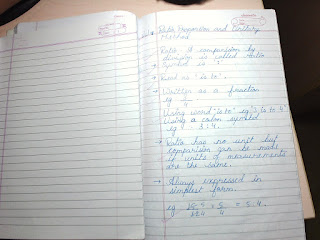 Ratio Proportion and Unitary
Method
Ratio: A comparison by
division is called ratio
Symbol is :
Read as "is to".
Written as a fraction
eg 3/4
Using word "is to" eg "3 is to 4"
Using a colon symbol
eg 3:4.
Ratio has no unit but
comparison can be made
if units of measurements
are the same.
Always expressed in
simplest form.
eg
= 5:4